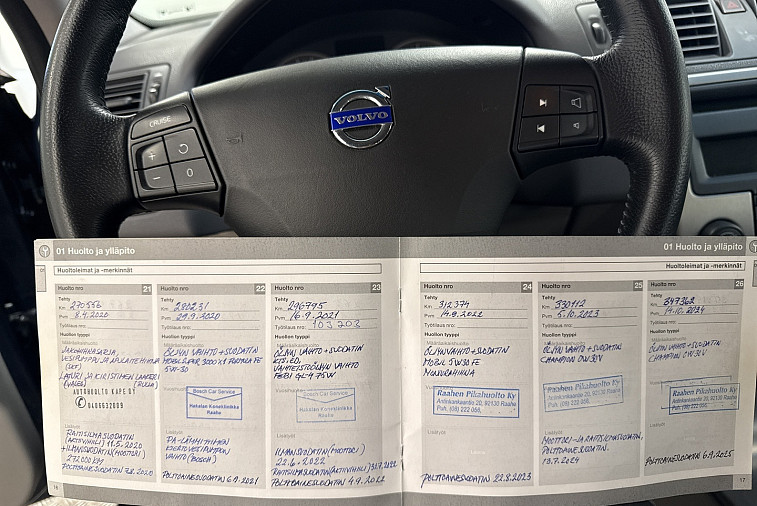 VOLVO
CRUISE
+
-
0
01 Huolto ja ylläpito
01 Huolto ja ylläpito
Huoltoleimat ja -merkinnät
Huoltoleimat ja -merkinnät
Huolto nro 21
Tehty
Km 270556
Pvm 8.4.2020
Työtilaus nro:
Huollon tyyppi
Määräaikaishuolto
JAKOHIHNASARJA,
VESIPUMPPU JA
LATURI JA KIRISTIMEN
AUTOHUOLTO KAPE OY
0405632009
Lisätyöt
RAITISILMASUODATIN
(AKTIIVIHIILI) 11.5.2020
+ILMANSUODATIN(MOOTTORI)
272,000 KM
POLTTOAINESUODATIN
Huolto nro 22
Tehty
Km 280231
Pvm .9.2020
Työtilaus nro:
Huollon tyyppi
Määräaikaishuolto
ÖLJYN VAIHTO+SUODATIN
MOBIL SUPER 3000 X1 FORMULA FE
5W-30
Bosch Car Service
Hakalan Koneklinikka
Raahe
Lisätyöt
VAIHTO (BOSCH)
POLTTOAINESUODATIN 6.9.2021
Huolto nro 23
Tehty
Km 296795
Pvm 16.9.2021
Työtilaus nro: 103203
Huollon tyyppi
Määräaikaishuolto
ÖLJYN VAIHTO+SUODATIN
VAIHTEISTOÖLJYN VAIHTO
FEBI GL-4 75W
Bosch Car Service
Hakalan Koneklinikka
Raahe
Lisätyöt
ILMANSUODATIN(MOOTTORI)
22.6.2022
RAITISILMASUODATIN(AKTIIVIHIILI)
POLTTOAINESUODATIN 4.9.2022
16
Huolto nro 24
Tehty
Km 312374
Pvm 14.9.2022
Työtilaus nro:
Huollon tyyppi
Määräaikaishuolto
ÖLJYNVAIHTO+SUODATIN
MOBIL 5W30 FE
MONORAHINNA
Raahen Pilzhuolto Ky
92130 Raahe
Puh. (08) 222 066,
Lisätyöt
POLTTOAINESUODATIN 22.8.2023
Huolto nro 25
Tehty
Km 330112
Pvm 5.10.2023
Työtilaus nro:
Huollon tyyppi
Määräaikaishuolto
ÖLJYNVAIHTO+SUODATIN
CHAMPION 0W30V
Raahen Pilzhuolto Ky
92130 Raahe
Puh. (08) 222 066,
Lisätyöt
MOOTTORI- JA RAITISILMASUODATIN,
POLTTOAINESUODATIN.
13.7.2024
Huolto nro 26
Tehty
Km 347362
Pvm 14.10.2024
Työtilaus nro:
Huollon tyyppi
Määräaikaishuolto
ÖLJYNVAIHTO+SUODATIN
CHAMPION 0W30V
Raahen Pilzhuolto Ky
Lisätyöt
POLTTOAINESUODATIN 6.9.2025
17